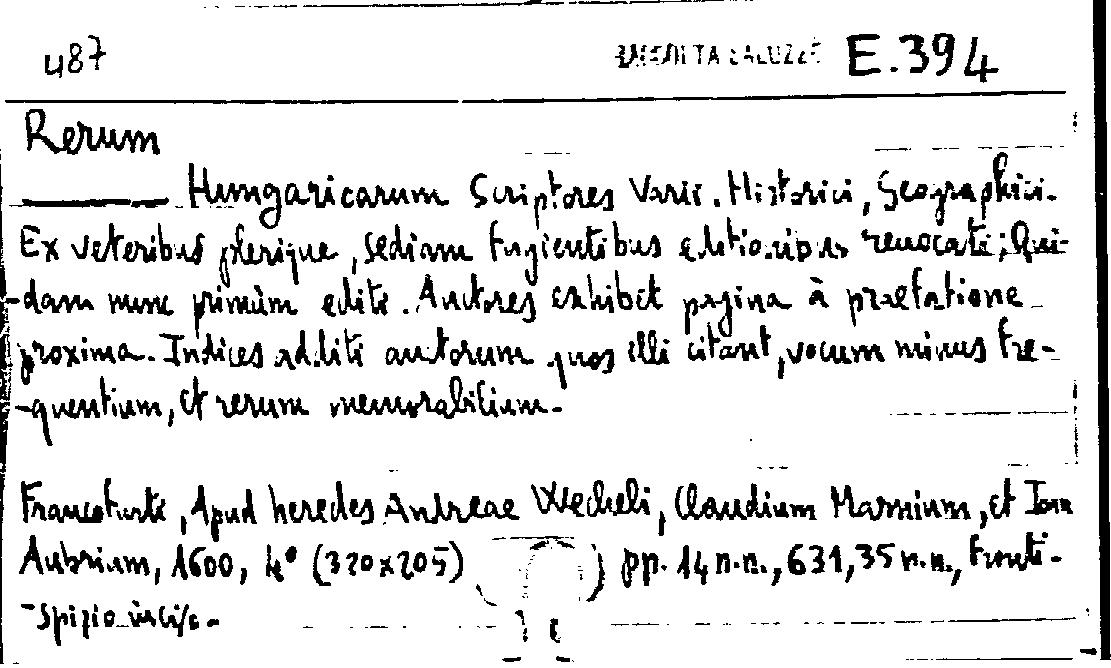 487 RACCOLTA SALUZZO E.394
Rerum
Hungaricarum Scriptores Varii. Historici, Geographici.
Ex veteribus plerique, sed iam fugientibus editionibus revocati; Qui-
-dam nunc primùm editi. Auctores exhibet pagina à praefatione
proxima. Indices additi autorum quos illi citant, vocum minus fre-
-quentium, et rerum memorabilium.
Francofurti, Apud heredes Andreae Wecheli, Claudium Marnium, et Ioan
Aubrium, 1600, 4° (320x205) pp. 14 n.n., 631, 35 n.n., Fronti-
-spizio inciso.